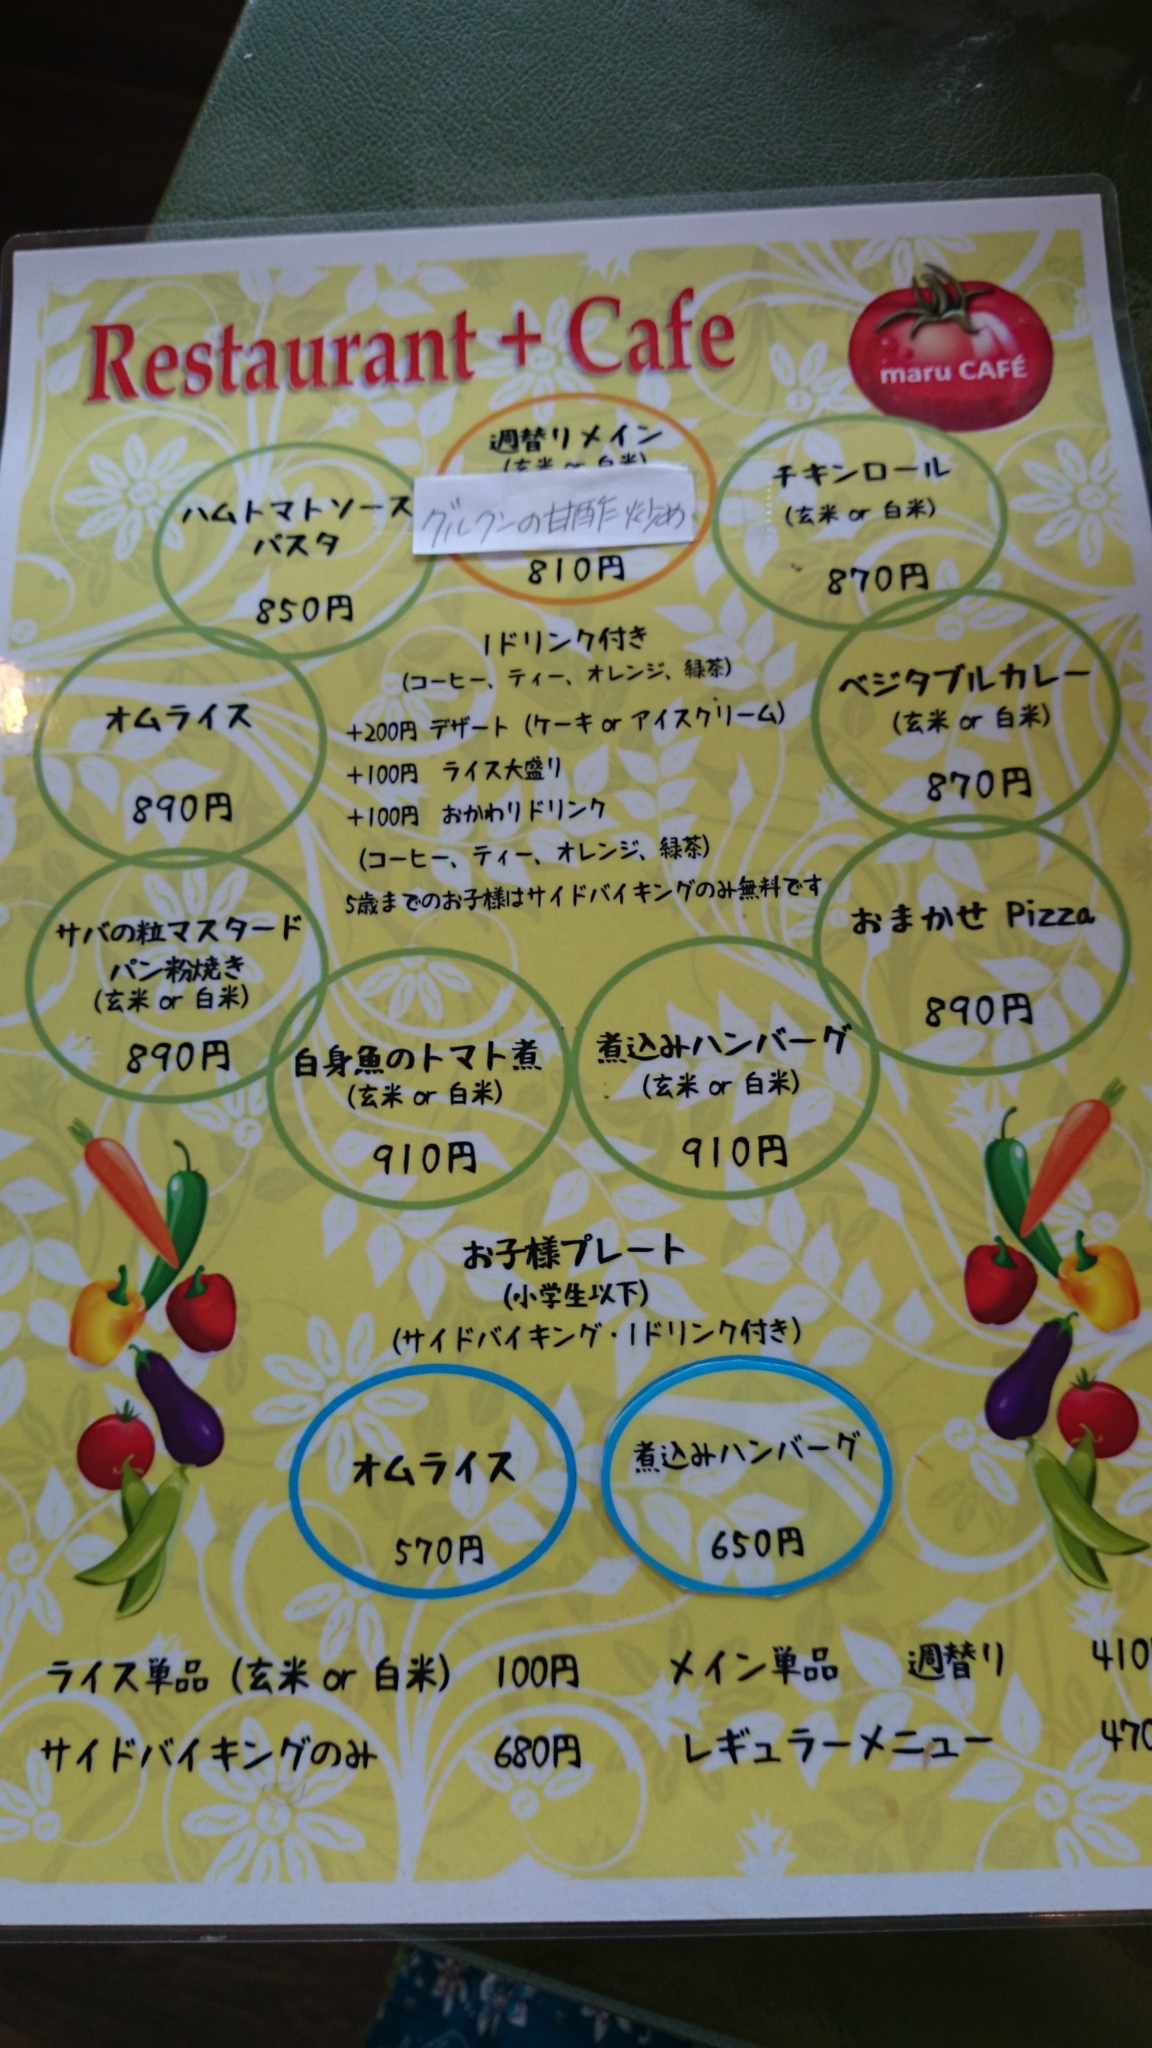 Restaurant + Cafe
maru CAFÉ
週替りメイン
(玄米 or 白米)
グルクンの甘酢炒め
810円
ハムトマトソース
パスタ
850円
チキンロール
(玄米 or 白米)
870円
1ドリンク付き
(コーヒー、ティー、オレンジ、緑茶)
+200円 デザート (ケーキ or アイスクリーム)
+100円 ライス大盛り
+100円 おかわりドリンク
(コーヒー、ティー、オレンジ、緑茶)
5歳までのお子様はサイドバイキングのみ無料です
オムライス
890円
ベジタブルカレー
(玄米 or 白米)
870円
サバの粒マスタード
パン粉焼き
(玄米 or 白米)
890円
おまかせ Pizza
890円
白身魚のトマト煮
(玄米 or 白米)
910円
煮込みハンバーグ
(玄米 or 白米)
910円
お子様プレート
(小学生以下)
(サイドバイキング・1ドリンク付き)
オムライス
570円
煮込みハンバーグ
650円
ライス単品 (玄米 or 白米) 100円
メイン単品 週替り 410
サイドバイキングのみ 680円
レギュラーメニュー 470